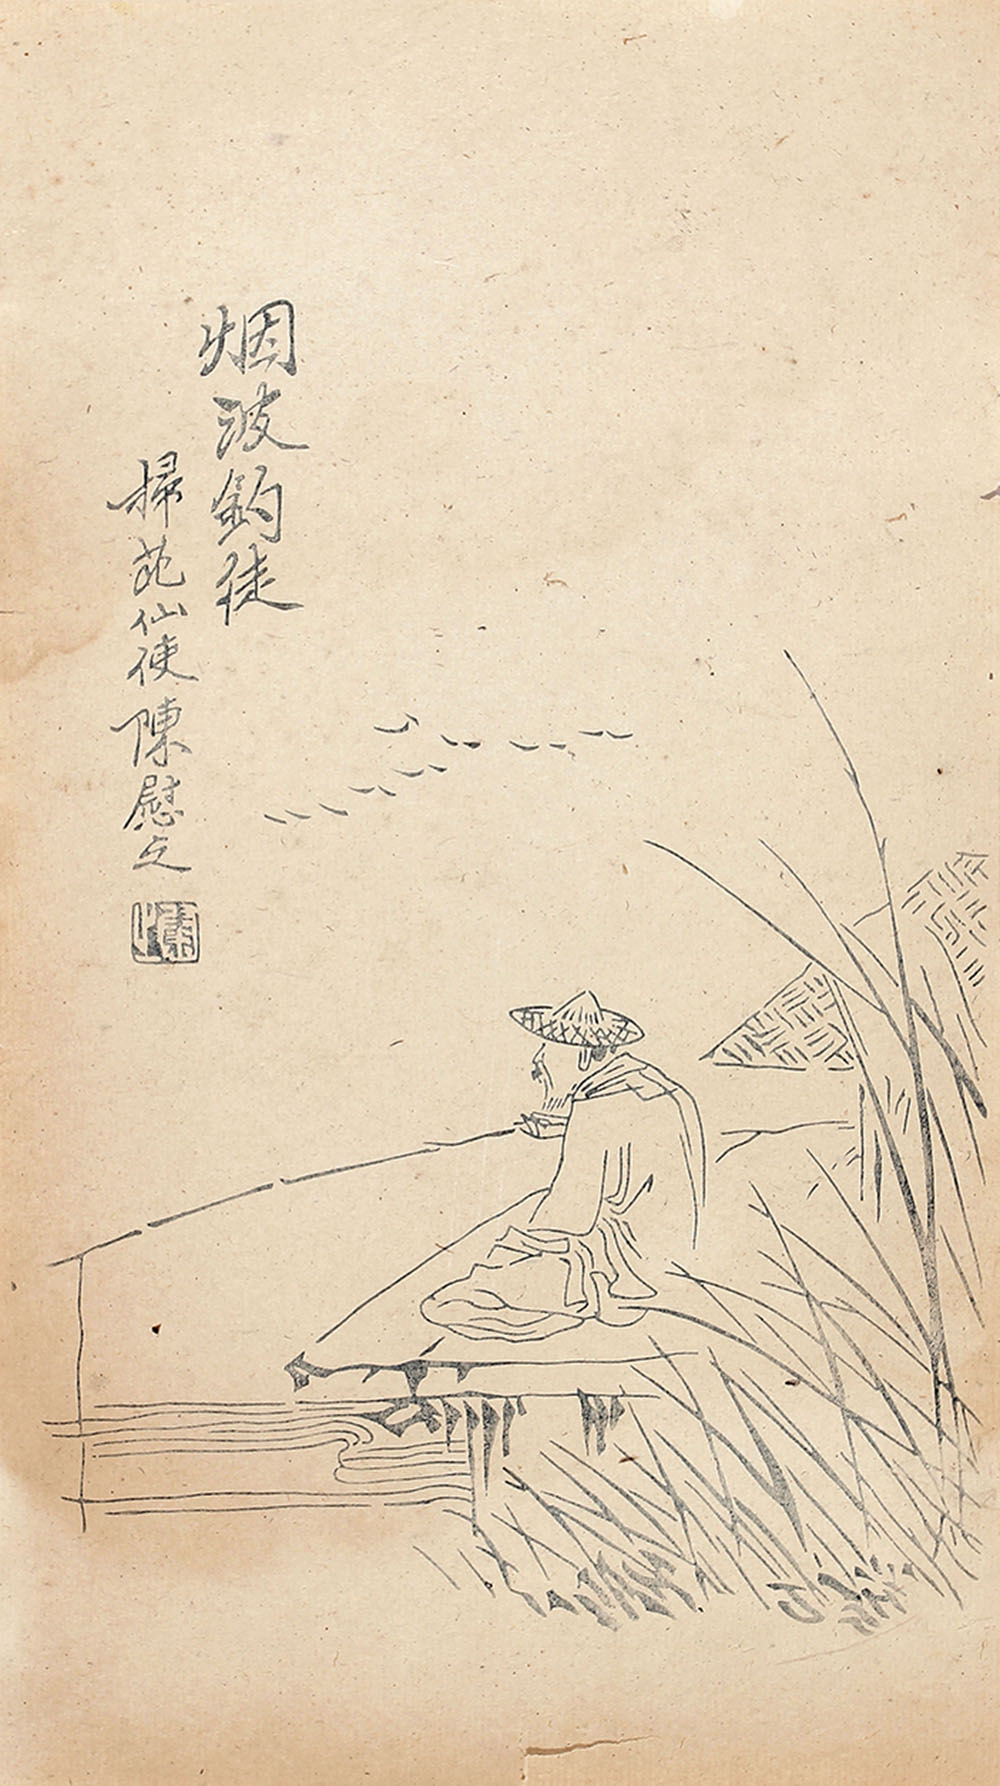 烟波釣徒
掃花仙使陳慰之